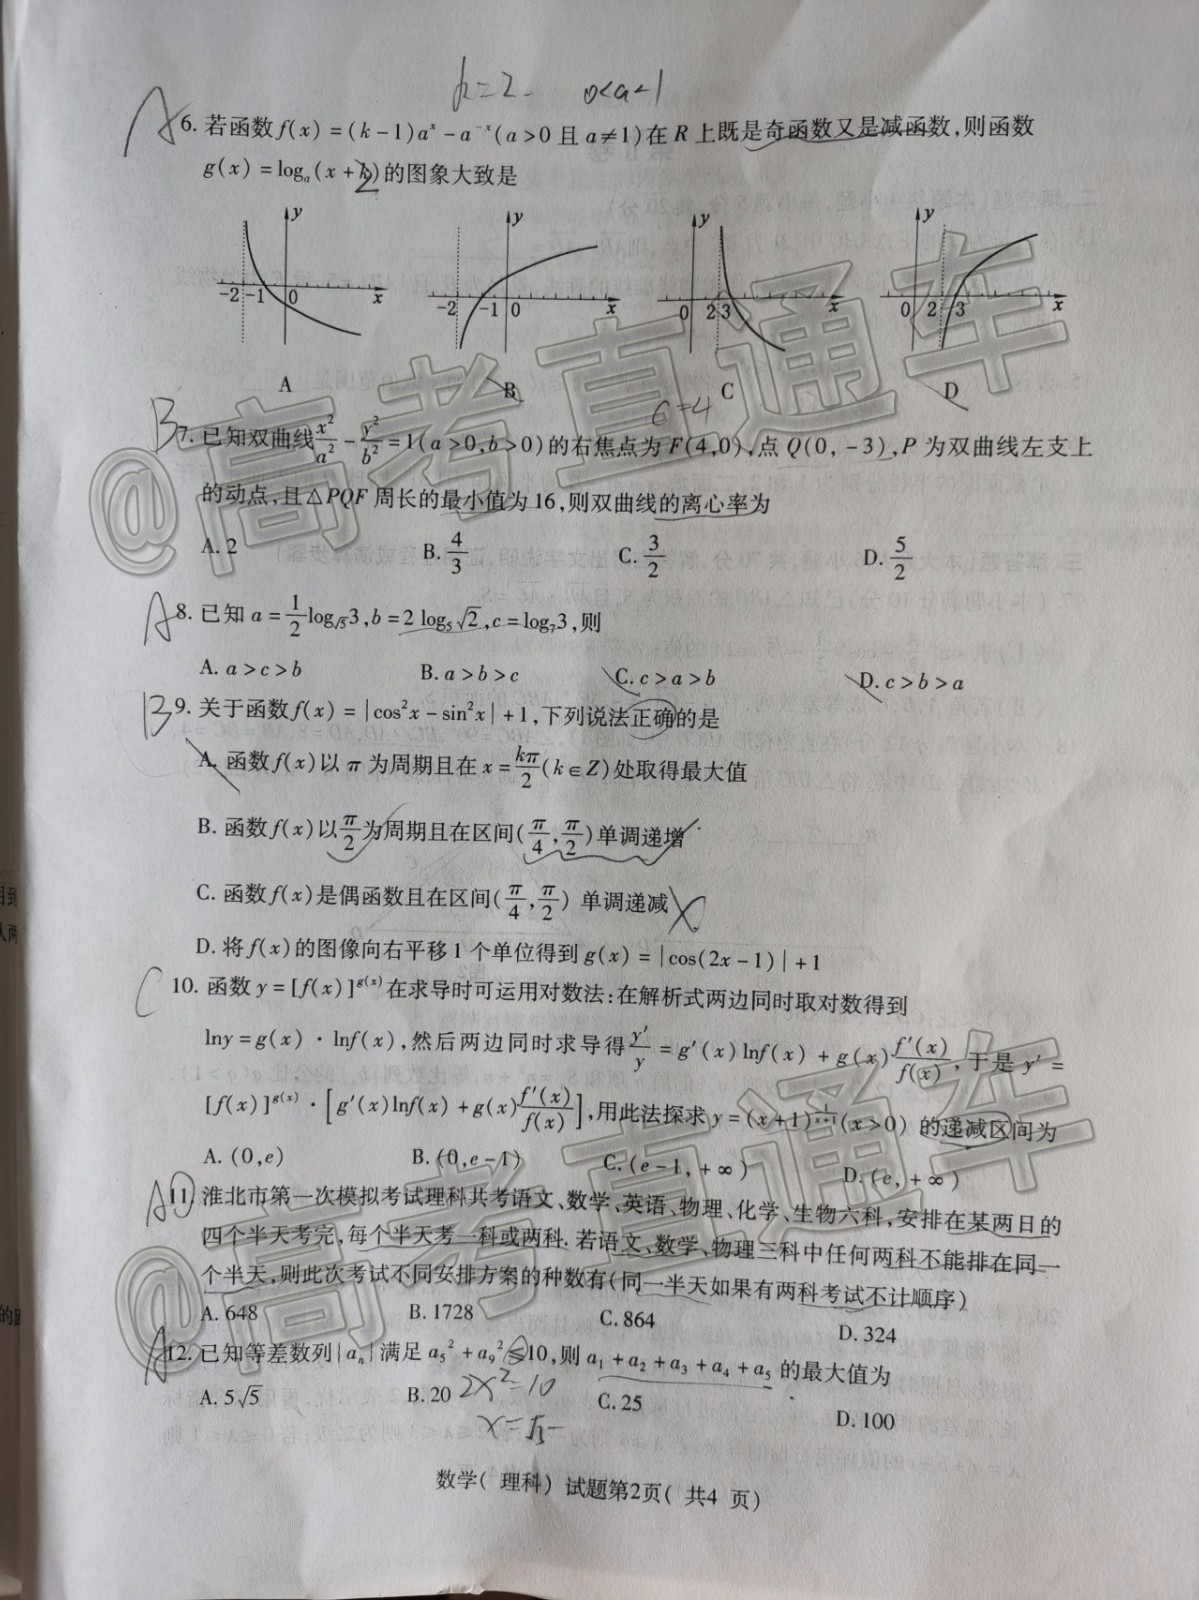 k=2 0<a<1
A 6. 若函数 f(x) = (k-1)aˣ - a⁻ˣ (a>0 且 a≠1) 在 R 上既是奇函数又是减函数,则函数
g(x) = logₐ(x+k) 的图象大致是
y y y y
-2 -1 0 x -2 -1 0 x 0 2 3 x 0 2 3 x
A B C D
c=4
B 7. 已知双曲线 x²/a² - y²/b² = 1(a>0,b>0)的右焦点为 F(4,0),点 Q(0,-3),P 为双曲线左支上
的动点,且△PQF 周长的最小值为16,则双曲线的离心率为
A. 2 B. 4/3 C. 3/2 D. 5/2
A 8. 已知 a = 1/2 log_√5 3, b = 2 log₅√2, c = log₇3,则
A. a>c>b B. a>b>c C. c>a>b D. c>b>a
B 9. 关于函数 f(x) = |cos²x - sin²x| + 1,下列说法正确的是
A. 函数 f(x) 以 π 为周期且在 x = kπ/2 (k∈Z) 处取得最大值
B. 函数 f(x) 以 π/2 为周期且在区间(π/4, π/2)单调递增
C. 函数 f(x) 是偶函数且在区间(π/4, π/2) 单调递减
D. 将 f(x) 的图像向右平移1个单位得到 g(x) = |cos(2x-1)| + 1
C 10. 函数 y = [f(x)]^g(x) 在求导时可运用对数法:在解析式两边同时取对数得到
lny = g(x)·lnf(x),然后两边同时求导得 y′/y = g′(x)lnf(x) + g(x) f′(x)/f(x),于是 y′ =
[f(x)]^g(x) · [g′(x)lnf(x) + g(x) f′(x)/f(x)],用此法探求 y = (x+1)^(1/(x+1)) (x>0) 的递减区间为
A. (0,e) B. (0,e-1) C. (e-1,+∞) D. (e,+∞)
A 11. 淮北市第一次模拟考试理科共考语文、数学、英语、物理、化学、生物六科,安排在某两日的
四个半天考完,每个半天考一科或两科. 若语文、数学、物理三科中任何两科不能排在同一
个半天,则此次考试不同安排方案的种数有(同一半天如果有两科考试不计顺序)
A. 648 B. 1728 C. 864 D. 324
A 12. 已知等差数列{aₙ}满足 a₅² + a₉² ≤ 10,则 a₁ + a₂ + a₃ + a₄ + a₅ 的最大值为
A. 5√5 B. 20 C. 25 D. 100
2x²=10
x=√5
数学( 理科) 试题第2页( 共4 页)
@高考直通车
@高考直通车